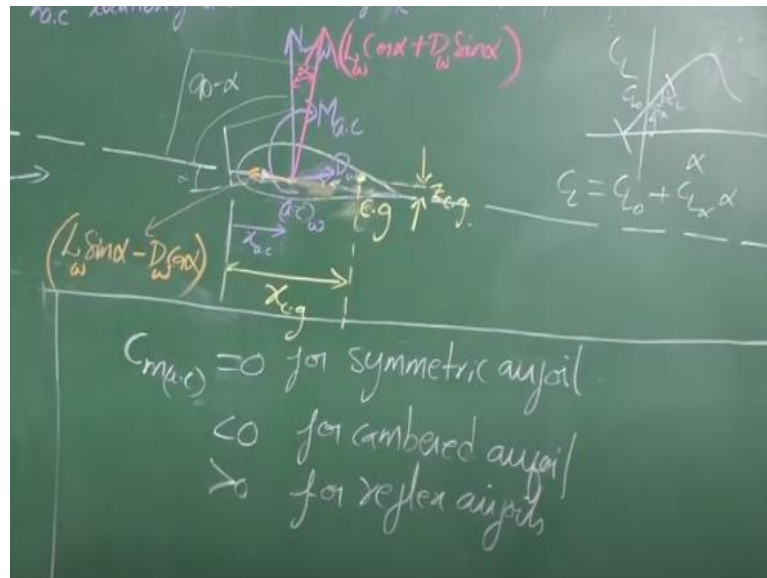 a.c
90-α
L_w
(L_w Cosα + D_w Sinα)
M_a.c
D_w
α
(a.c)_w
c.g
z_c.g.
x_a.c
x_c.g
(L_w Sinα - D_w Cosα)
C_L
C_L0
α
C_L = C_L0 + C_Lα α
C_m(a.c) = 0 for symmetric airfoil
<0 for cambered airfoil
>0 for reflex airfoils